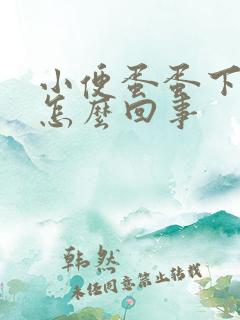 小便蛋蛋下
怎麼回事
韩然
未经同意禁止转载